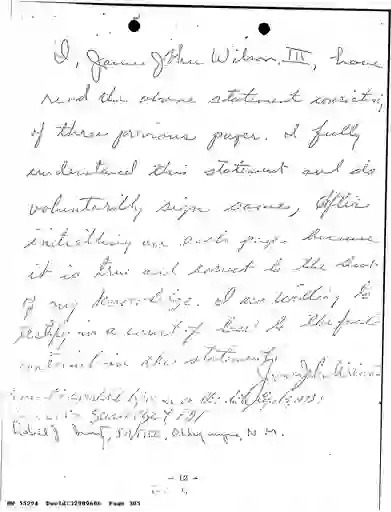 I, James John Wilson, III, have
read the above statement consisting
of three previous pages. I fully
understand this statement and do
voluntarily sign same, after
initialling on each page because
it is true and correct to the best
of my knowledge. I am willing to
testify in a court of law to the facts
contained in the statement.
James John Wilson
Special Agent FBI
SA, FBI, Albuquerque, N.M.
Page 303